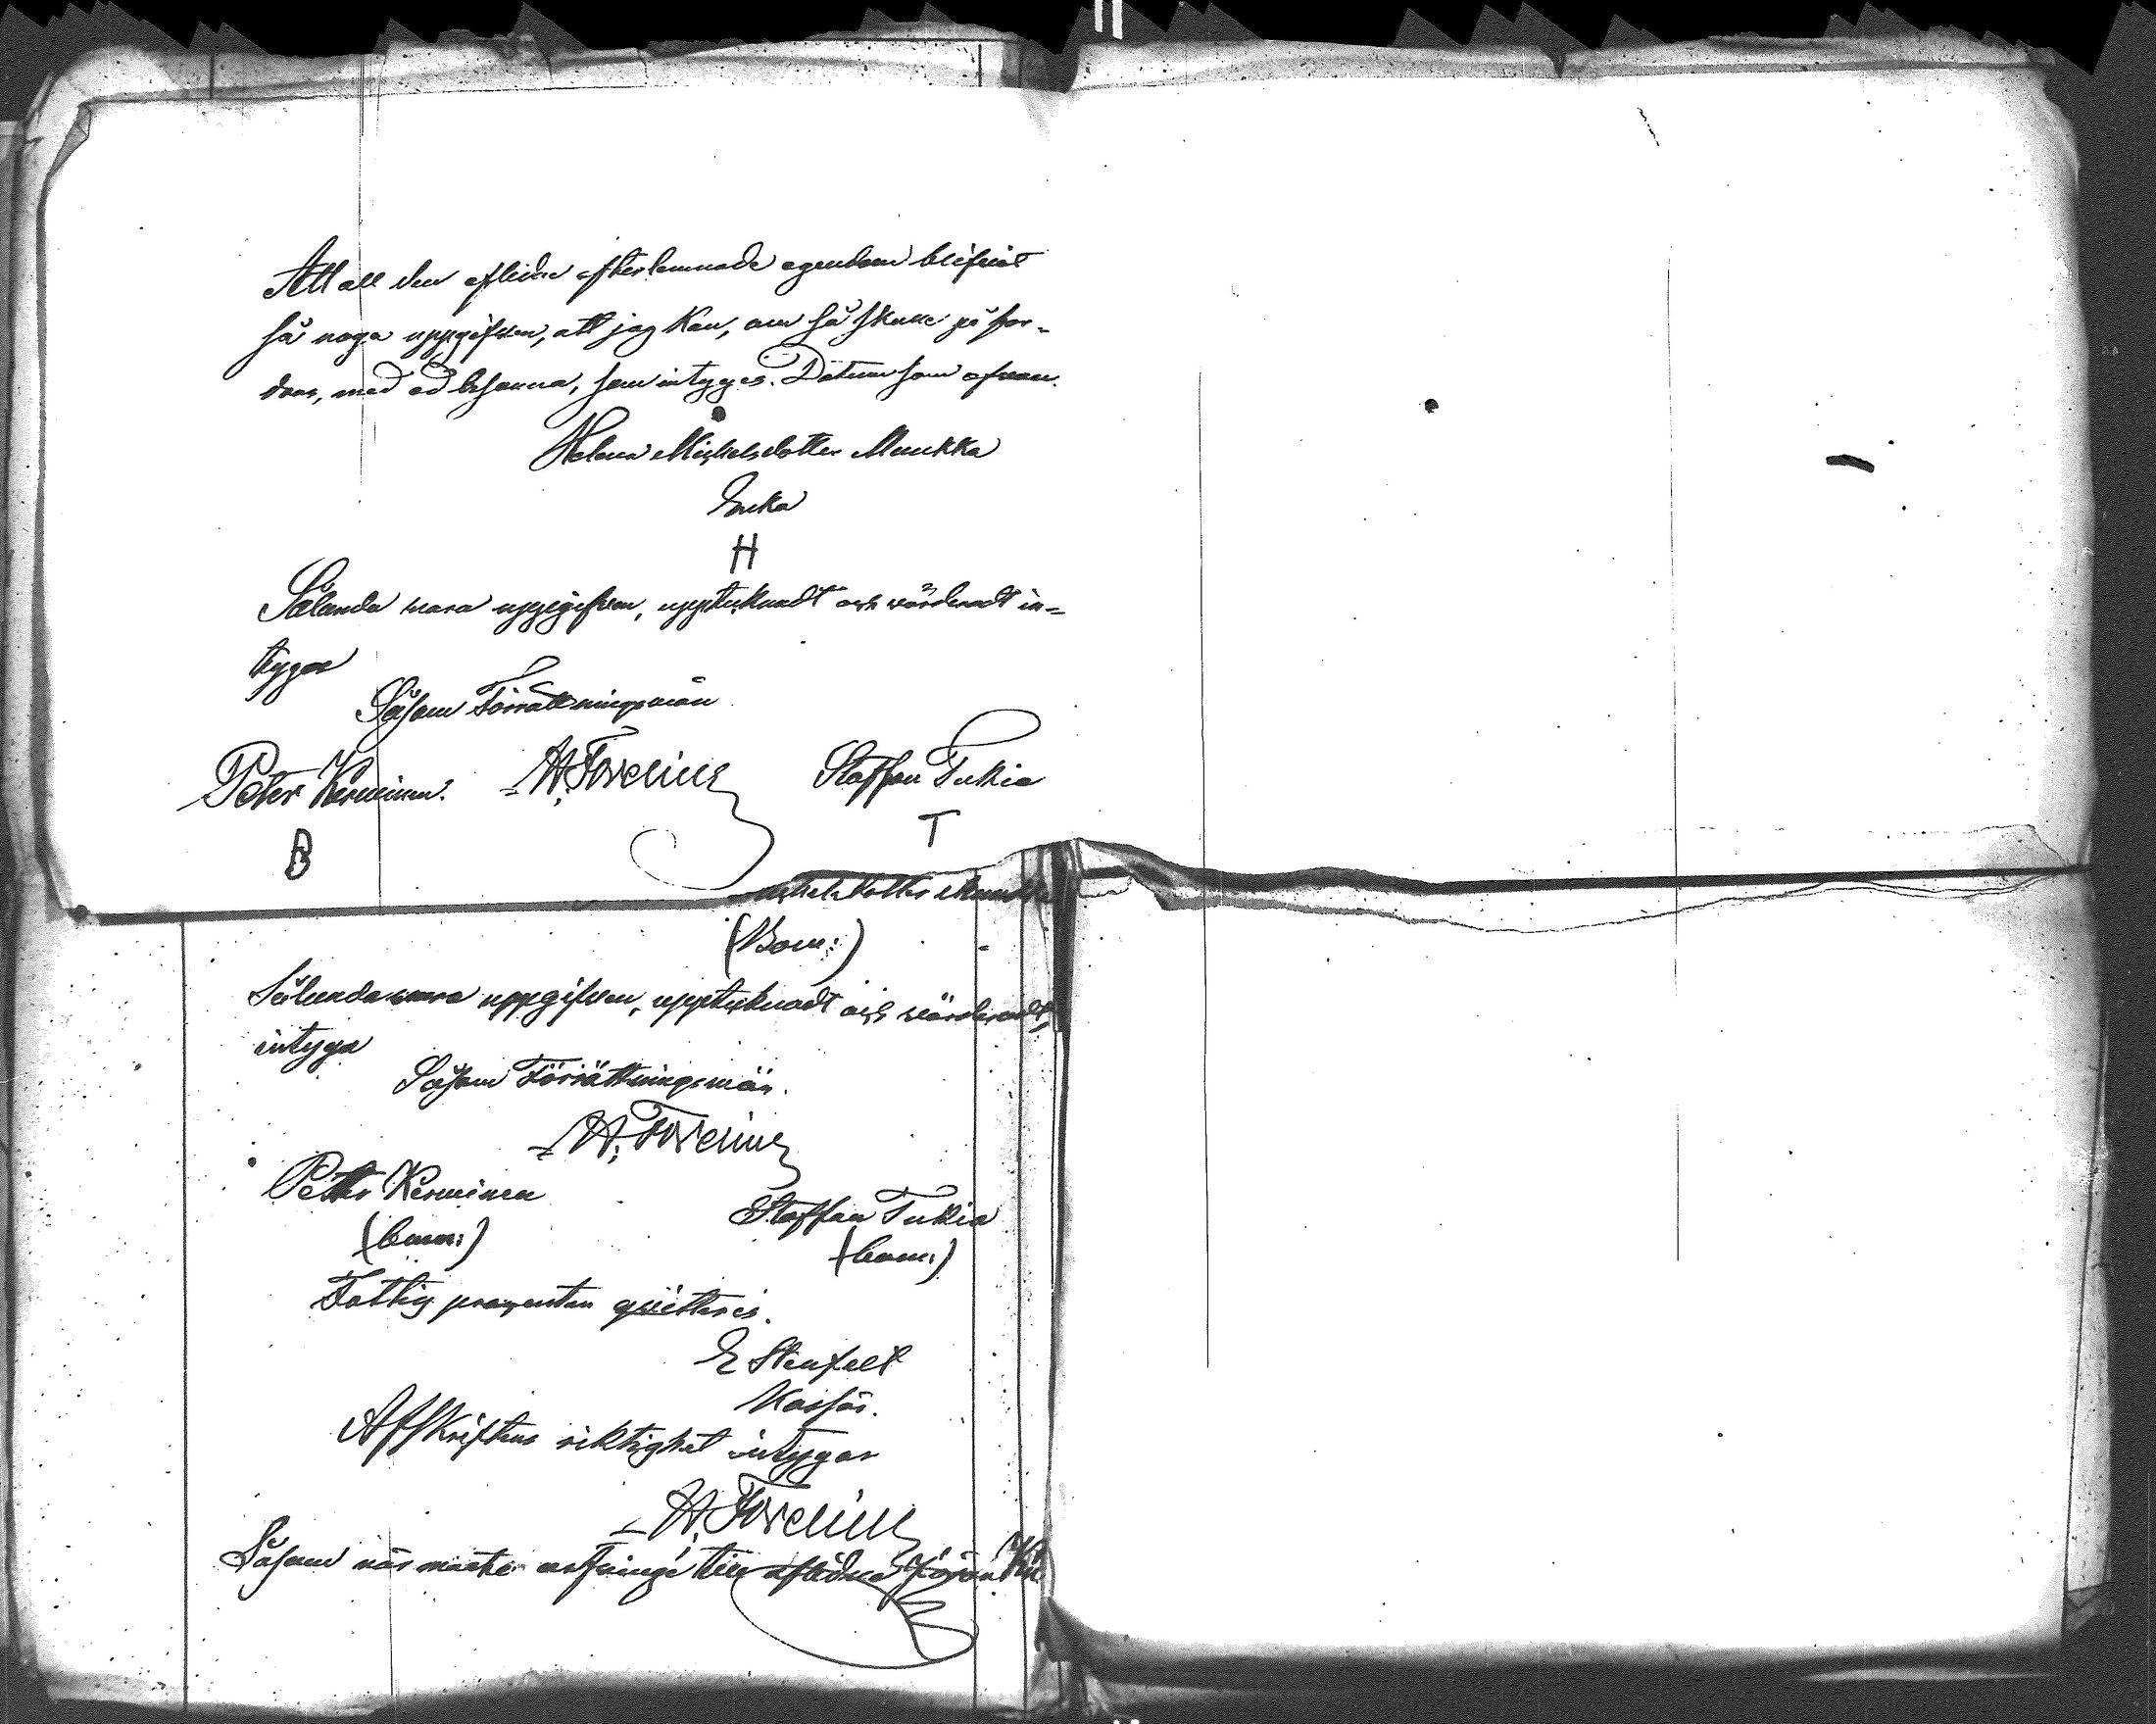 Att all den aflidne efterlemnade egendom blifvit
så noga uppgifven, att jag kan, om så skulle på for-
dras, med ed besanna, som intygas. Datum som ofvan.
Helena Michelsdotter Munkka
Enka
H
Sålunda vara uppgifven, upptecknadt och värderadt in-
tyga
Såsom Förrättningsmän
Peter Kerminen. H. Forelius Staffan Tukia
B T
ichelsdotter Munkka
(Bom:)
Sålunda vara uppgifven, upptecknadt och värderadt,
intyga
Såsom Förrättningsmän.
H. Forelius
Petter Kerminen
Staffan Tukia
(bom:)
(bom:)
Fattig procenten qvitteras.
E Stenfelt
Kassör.
Afskriftens riktighet intygar
H. Forelius
Såsom närmaste arfvinge till aflidne Jöran